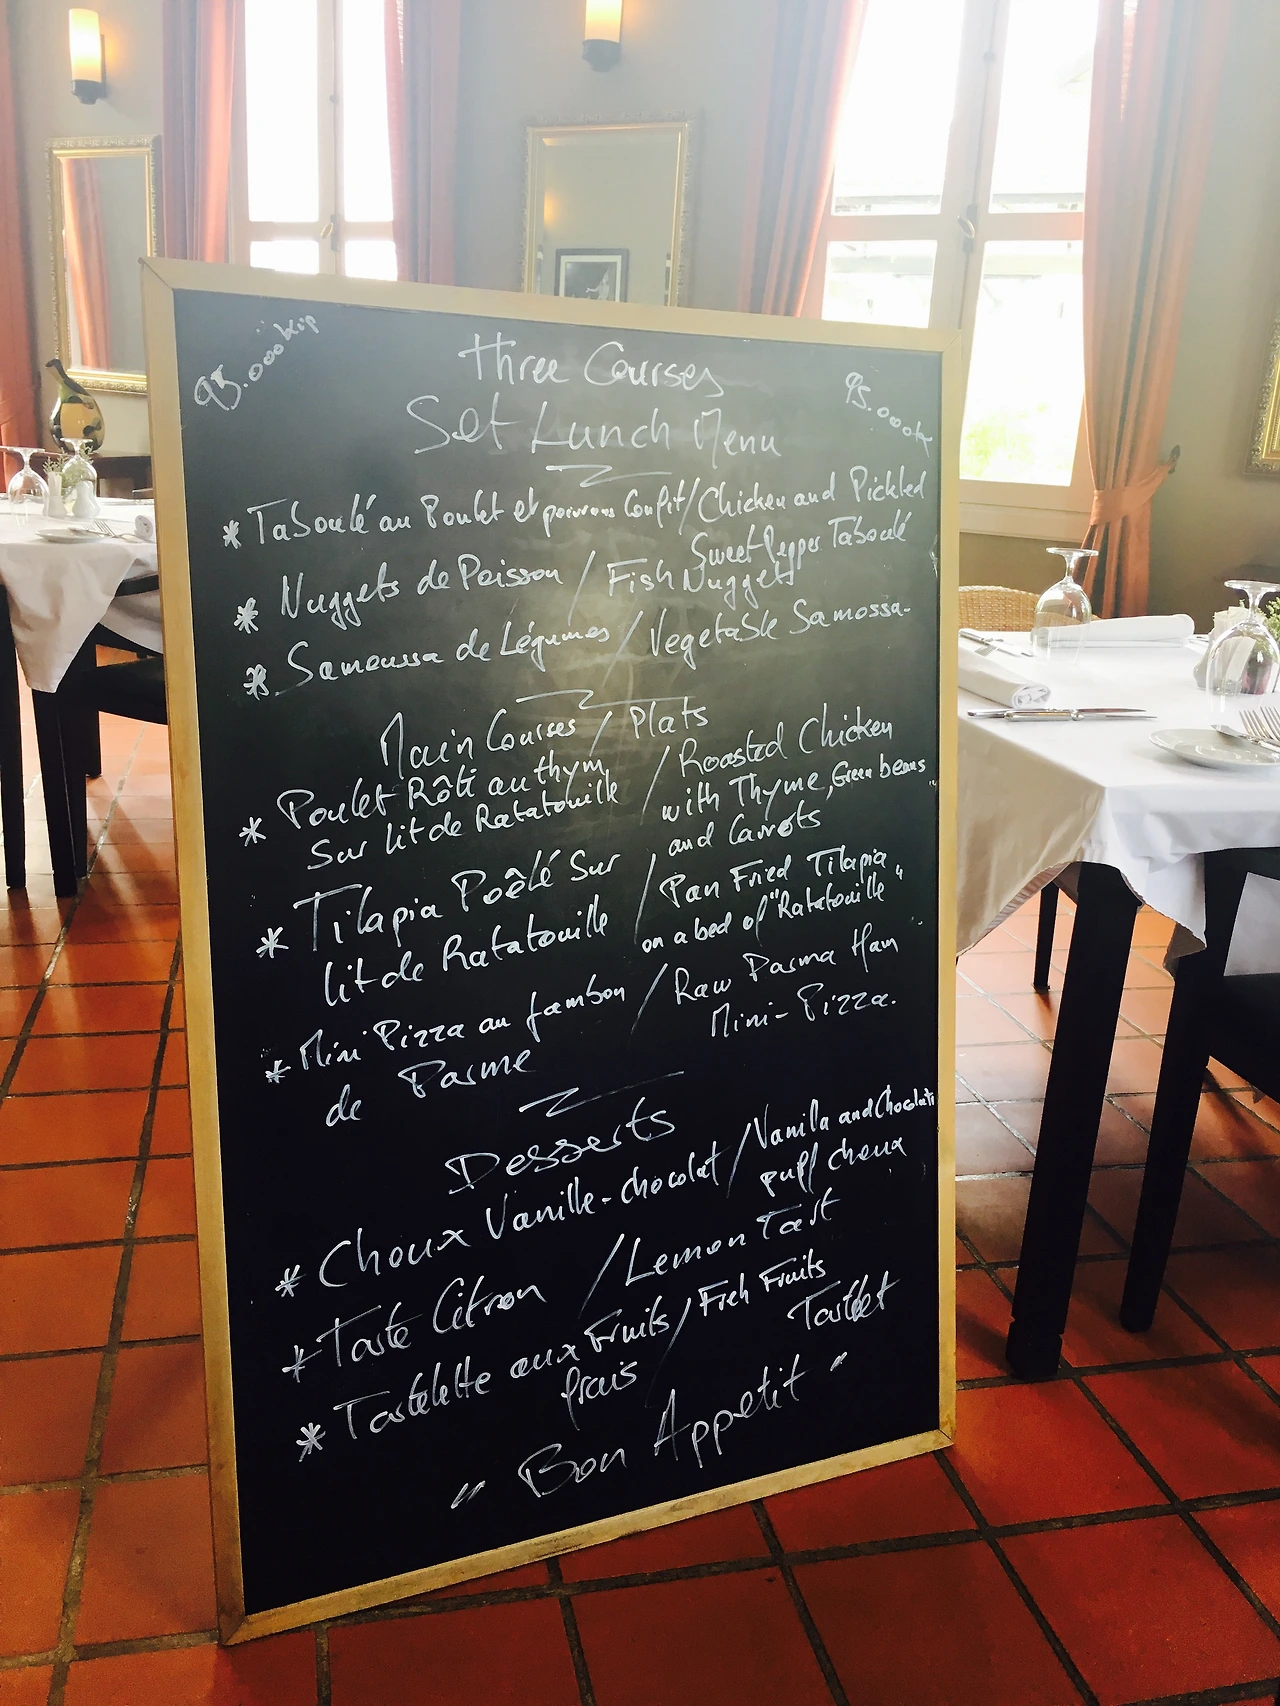 95.000 Kip
95.000k
Three Courses
Set Lunch Menu
* Taboulé au Poulet et poivrons Confit / Chicken and Pickled
Sweet Pepper Taboulé
* Nuggets de Poisson / Fish Nuggets
* Samoussa de Légumes / Vegetable Samossa.
Main Courses / Plats
* Poulet Rôti au thym / Roasted Chicken
Sur lit de Ratatouille with Thyme, Green beans
and Carrots
* Tilapia Poêlé Sur / Pan Fried Tilapia
lit de Ratatouille on a bed of "Ratatouille"
* Mini Pizza au jambon / Raw Parma Ham
de Parme Mini-Pizza.
Desserts
* Choux Vanille-chocolat / Vanilla and Chocolate
puff choux
* Tarte Citron / Lemon Tart
* Tartelette aux Fruits / Freh Fruits
frais Tartelet
" Bon Appetit "